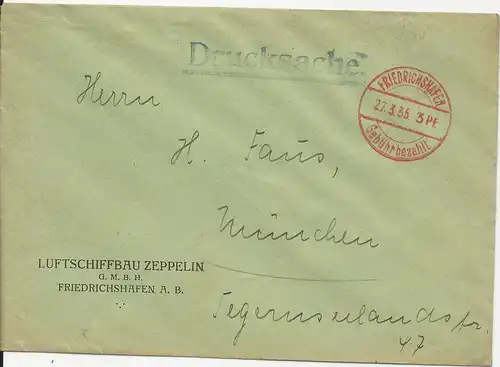 Drucksache
Herrn
H. Faus,
München
Tegernseelandstr.
47
FRIEDRICHSHAFEN
27.3.36 3 Pf.
Gebühr bezahlt
LUFTSCHIFFBAU ZEPPELIN
G. M. B. H.
FRIEDRICHSHAFEN A. B.